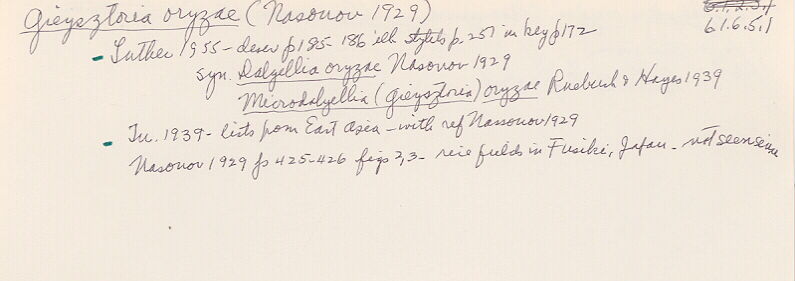 Gieysztoria oryzae (Nasonov 1929)
6.1.6.5.1
- Luther 1955 - descr p 185-186 ill stylets p. 257 in key p 172
syn. Dalyellia oryzae Nasonov 1929
Microdalyellia (Gieysztoria) oryzae Ruebush & Hayes 1939
- Tu. 1939 - lists from East Asia - with ref Nassonov 1929
Nasonov 1929 ps 425-426 figs 2,3 - rice fields in Fusiki, Japan - not seen since